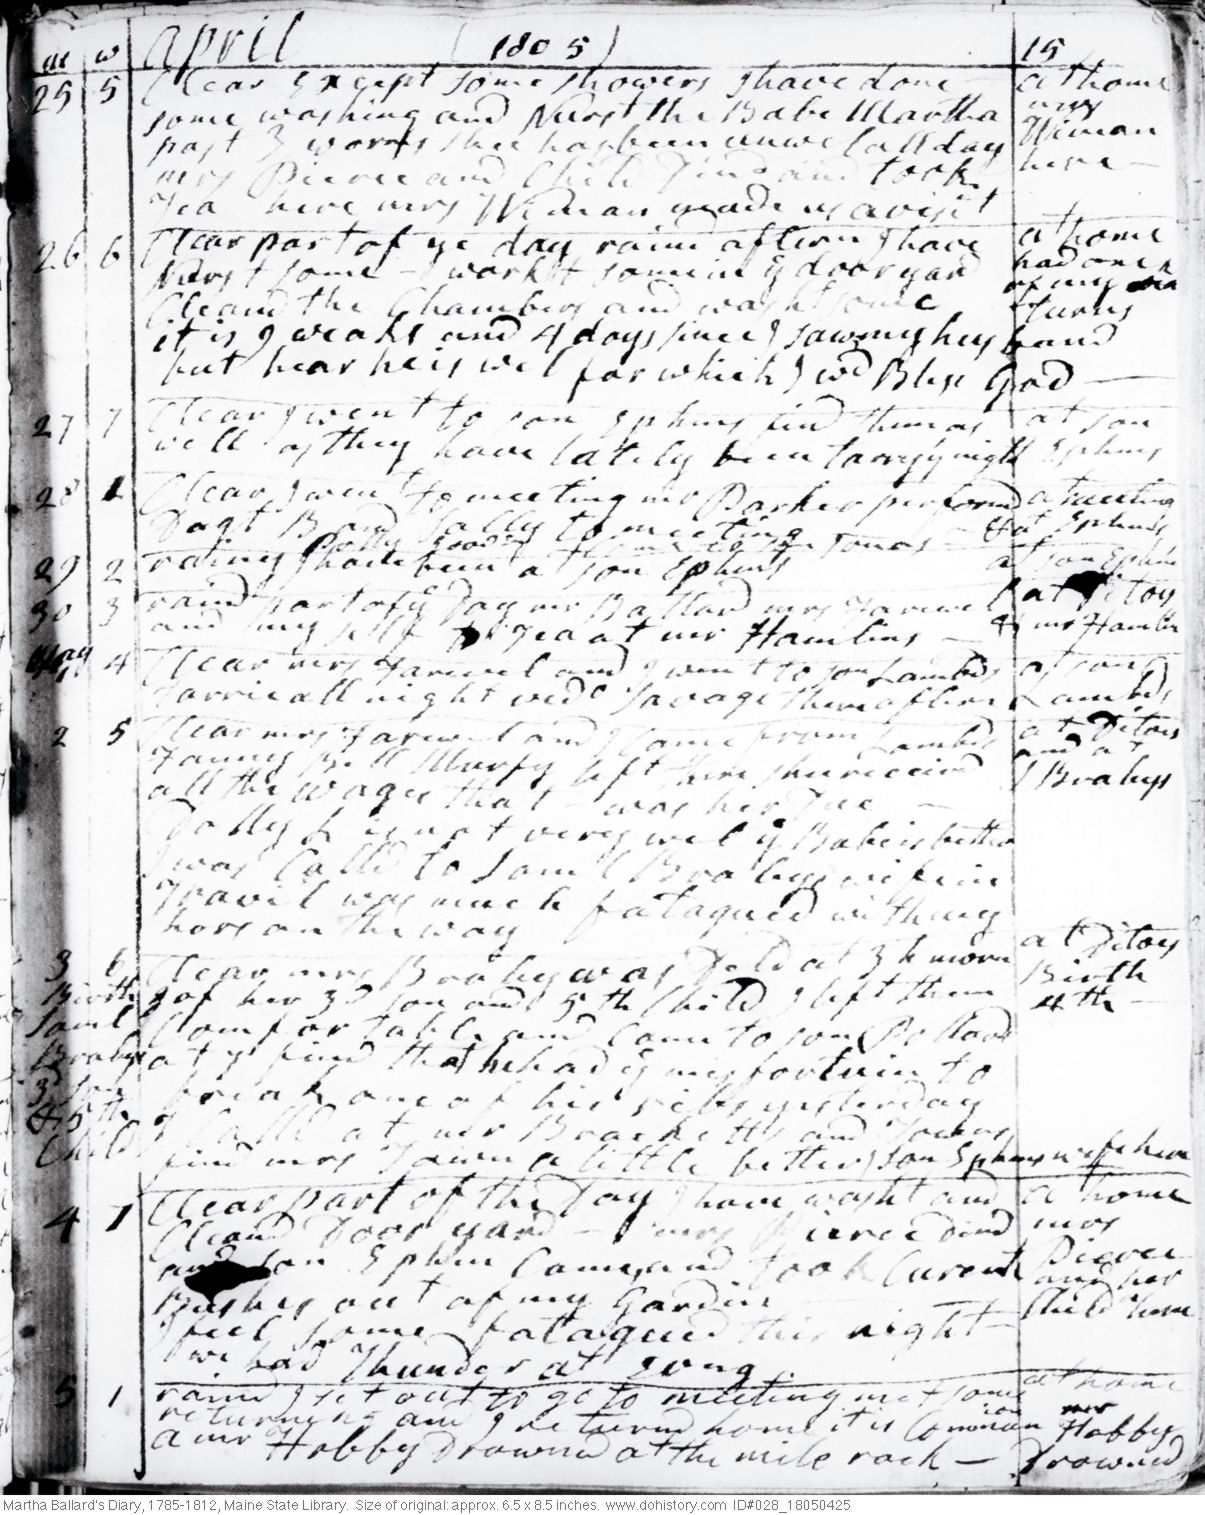 m w April (1805) 15
25 5 Clear Except some showers I have done at home
some washing and Nurst the Babe Martha mrs
past 3 worms Shee has been unwel all day Weman
mrs Pierce and Child Dind and took here —
Tea here mrs Weman made us a visit
26 6 Clear part of ye day raind aftern I have at home
Nurst some - I workt some in ye door yard had one
Cleand the Chambers and washt some of my turns
it is 9 weaks and 4 days since I saw my hus band
but hear he is wel for which I wd Bless God —
27 7 Clear I went to son Ephms find them as at son
well as they have lately been tarry'd night Ephms
28 1 Clear I went to meeting mr Parker performd at meeting
Dagt B and Sally to meeting & at Ephms
29 2 rainy I have been at son Ephms at son Ephm
30 3 raind part of ye Day mr Ballard mrs Farewel at Ditoy
and my self to Tea at mr Hamlins — & mr Hamlin
May 1 4 Clear mrs Farewel and I went to son Lambds at son
tarrie all night wedo Savage there aftern Lambds
2 5 Clear mrs Farewel and I Came from Lambds at Ditoys
Fanny Bell Murfy left there shee receivd and at
all the wages that was her Due — S Brabys
Dolly L is not very wel ye Babe is better
I was Calld to Saml Brabys wife in
Travil was much fatagued with my
hors on the way
3 6 Clear mrs Braby was Deld at 3 h morn at Ditoy
Birth of her 3d son and 5th Child I left them Birth
Saml Comfortable and Came to son Pollard 4th —
Brabys at ys find that he had ye misfortuin to
3d son break one of his ribs yesterday
& 5th I Calld at mr Bracketts and Towns
Child find mrs Town a little better son Ephms wife here
4 7 Clear part of the Day I have washt and at home
Cleand Door yard - mrs Pierce Dind mrs
and son Ephm Came and took Curent Pierce
Bushes out of my Gardin and her
I feel some fatagued this night — Child here
we had Thunder at Evng
5 1 raind I set out to go to meeting met some at home
returning and I returnd home it is Common mr Hobby
a mr Hobby Drownd at the mile rock — Drownd
Martha Ballard's Diary, 1785-1812, Maine State Library. Size of original: approx. 6.5 x 8.5 inches. www.dohistory.com ID#028_18050425